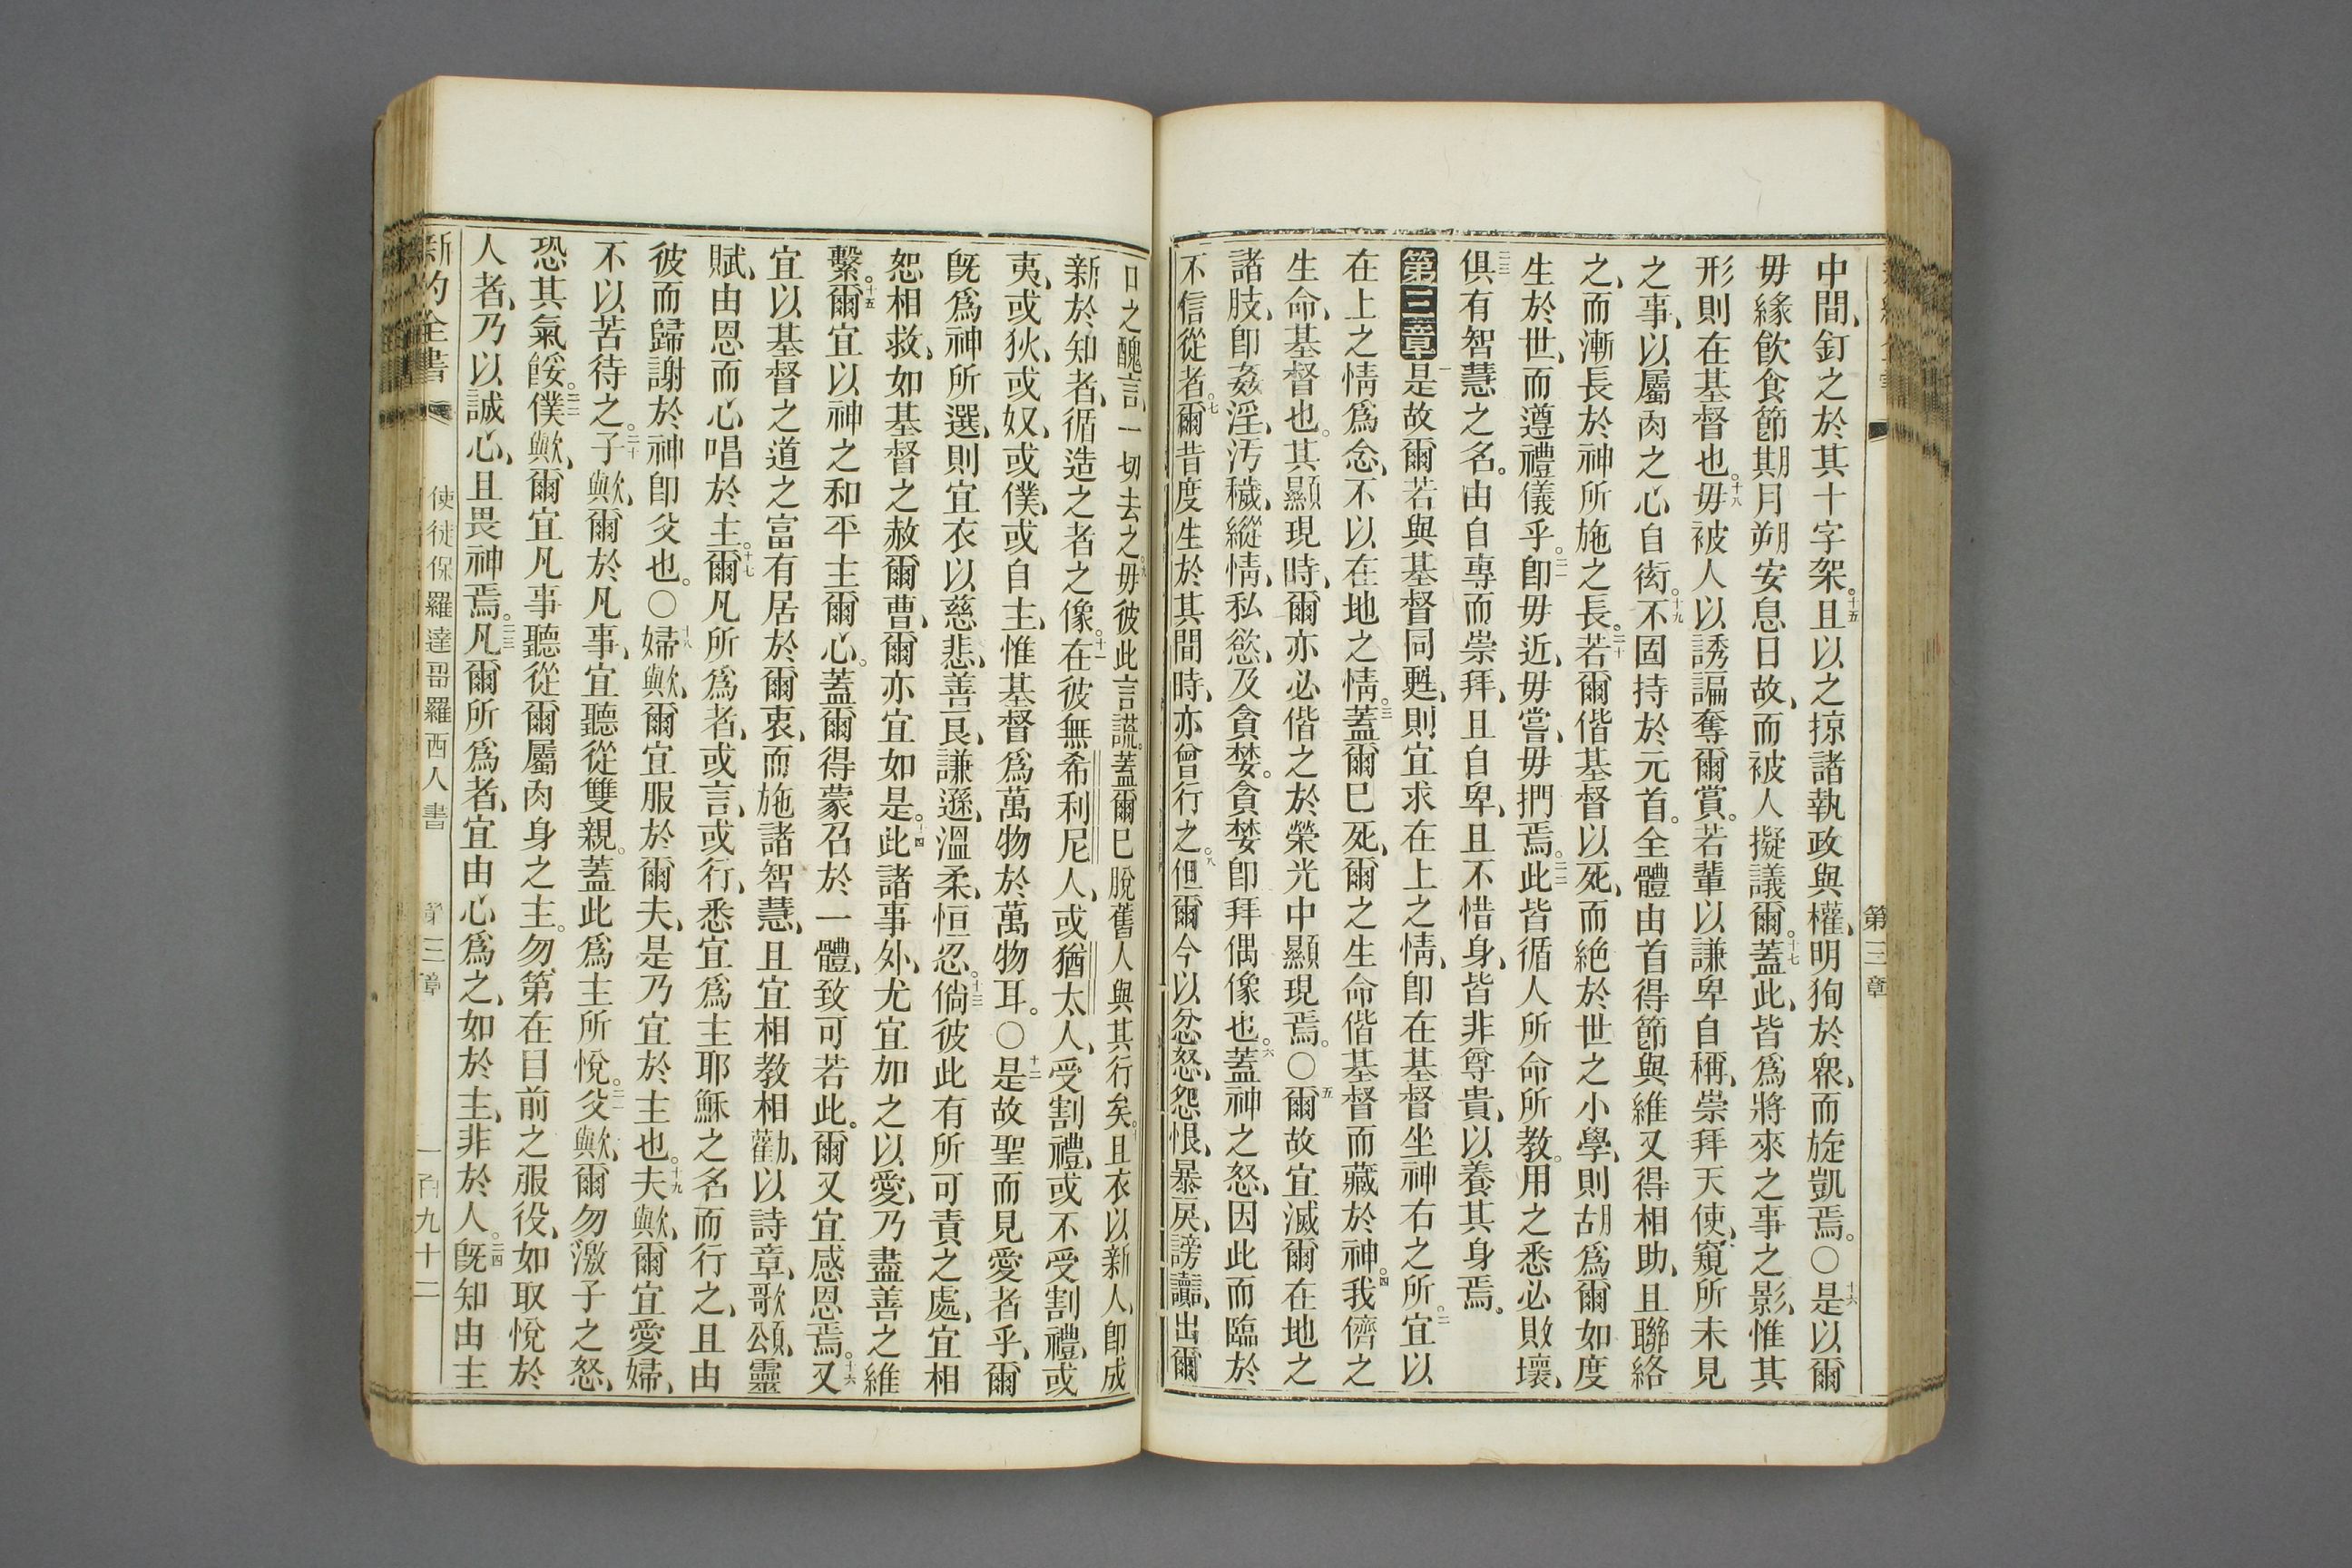 第三章
中間、釘之於其十字架。十五且以之掠諸執政與權、明狥於衆、而旋凱焉。〇十六是以爾
毋緣飲食節期月朔安息日故、而被人擬議爾。十七蓋此、皆爲將來之事之影、惟其
形則在基督也。十八毋被人以誘諞奪爾賞。若輩以謙卑自稱、崇拜天使、窺所未見
之事、以屬肉之心自衒。十九不固持於元首。全體由首得節與維又得相助、且聯絡
之、而漸長於神所施之長。二十若爾偕基督以死、而絶於世之小學、則胡爲爾如度
生於世、而遵禮儀乎。二一卽毋近、毋嘗、毋捫焉。二二此皆循人所命所教。用之悉必敗壞、
二三俱有智慧之名。由自專而崇拜、且自卑、且不惜身、皆非尊貴、以養其身焉。
第三章一是故爾若與基督同甦、則宜求在上之情、卽在基督坐神右之所。二宜以
在上之情爲念、不以在地之情。三蓋爾已死、爾之生命偕基督而藏於神。四我儕之
生命、基督也。其顯現時、爾亦必偕之於榮光中顯現焉。〇五爾故宜滅爾在地之
諸肢、卽姦淫、汚穢、縱情、私慾、及貪婪。貪婪卽拜偶像也。六蓋神之怒、因此而臨於
不信從者。七爾昔度生於其間時、亦曾行之。八但爾今以忿怒、怨恨、暴戾、謗讟、出爾
口之醜言、一切去之。九毋彼此言謊。蓋爾已脫舊人與其行矣。十且衣以新人、卽成
新於知者、循造之者之像。十一在彼無希利尼人、或猶太人、受割禮、或不受割禮、或
夷、或狄、或奴、或僕、或自主、惟基督爲萬物於萬物耳。〇十二是故聖而見愛者乎、爾
旣爲神所選、則宜衣以慈悲、善良、謙遜、溫柔、恒忍。十三倘彼此有所可責之處、宜相
恕相救、如基督之赦爾曹、爾亦宜如是。十四此諸事外、尤宜加之以愛、乃盡善之維
繫。十五爾宜以神之和平主爾心。蓋爾得蒙召於一體、致可若此。爾又宜感恩焉。十六又
宜以基督之道之富有居於爾衷、而施諸智慧、且宜相教相勸、以詩章、歌頌、靈
賦、由恩而心唱於主。十七爾凡所爲者、或言、或行、悉宜爲主耶穌之名而行之、且由
彼而歸謝於神卽父也。〇十八婦歟、爾宜服於爾夫、是乃宜於主也。十九夫歟、爾宜愛婦、
不以苦待之。二十子歟、爾於凡事、宜聽從雙親。蓋此爲主所悅。二一父歟、爾勿激子之怒、
恐其氣餒。二二僕歟、爾宜凡事聽從爾屬肉身之主。勿第在目前之服役、如取悅於
人者、乃以誠心、且畏神焉。二三凡爾所爲者、宜由心爲之、如於主、非於人。二四旣知由主
新約全書 使徒保羅達哥羅西人書 第三章 一百九十二